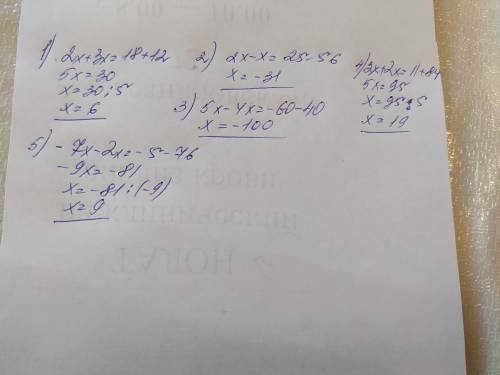 1) 2x+3x=18+12
5x=30
x=30:5
x=6
2) 2x-x=25-56
x=-31
3) 5x-4x=-60-40
x=-100
4) 3x+2x=11+84
5x=95
x=95:5
x=19
5) -7x-2x=-5-76
-9x=-81
x=-81:(-9)
x=9